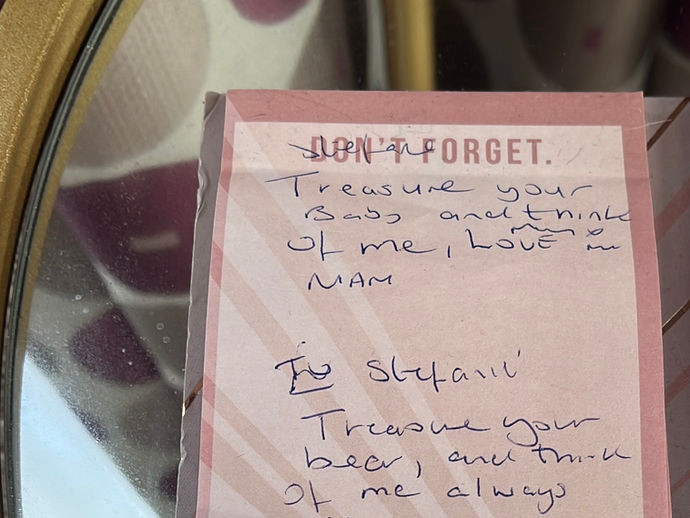 DON'T FORGET.
Stefanie
Treasure your
Baby and think
of me, LOVE
MAM
To Stefanie
Treasure your
bear, and think
of me always